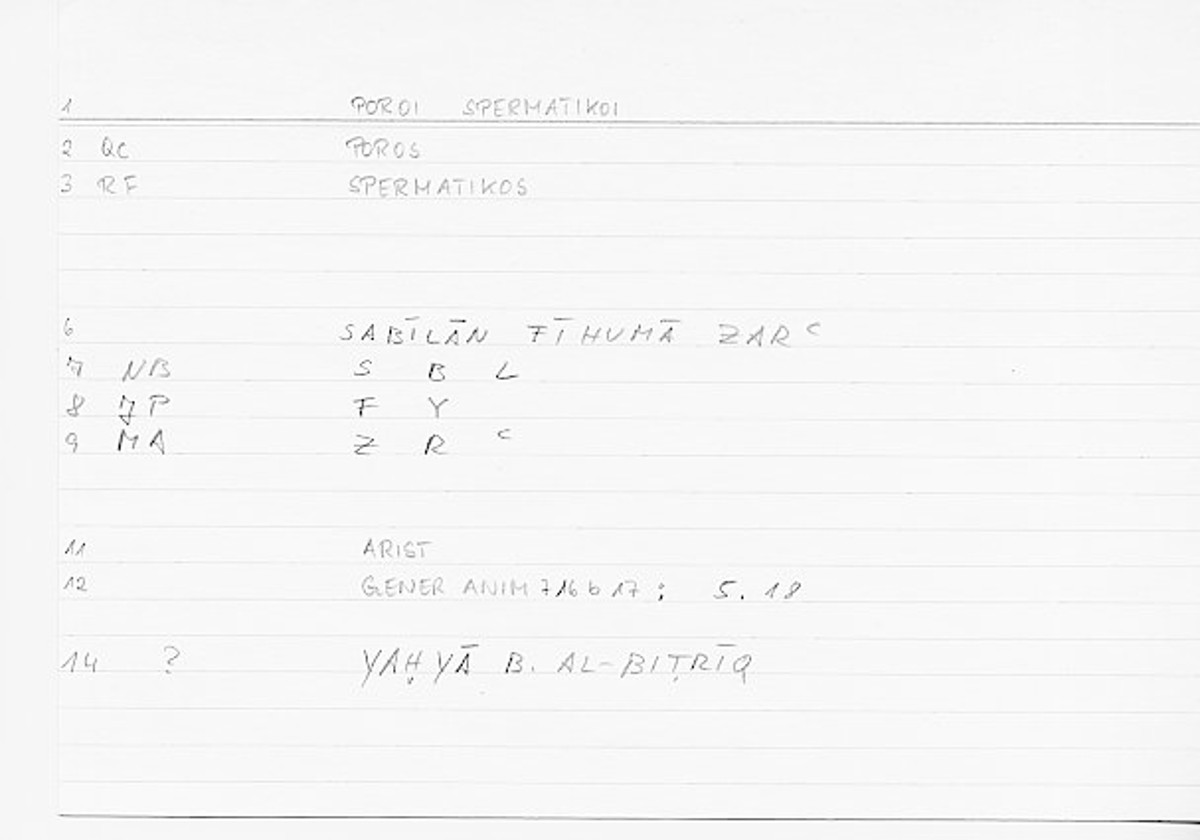 1 POROI SPERMATIKOI
2 QC POROS
3 RF SPERMATIKOS
6 SABĪLĀN FĪHUMĀ ZARᶜ
7 NB S B L
8 JP F Y
9 MA Z R ᶜ
11 ARIST
12 GENER ANIM 716 b 17 ; 5. 18
14 ? YAḤYĀ B. AL-BIṬRĪQ